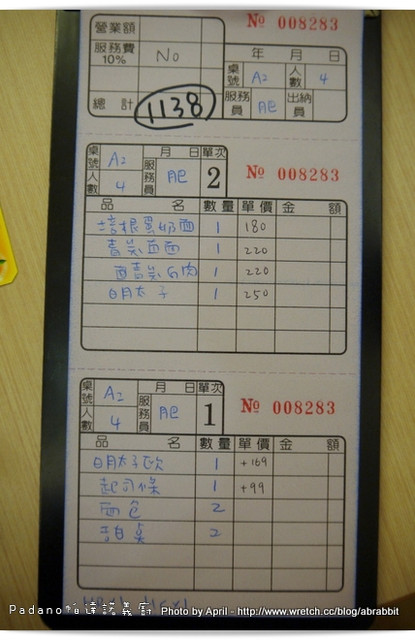 營業額 № 008283
服務費10% No 年 月 日
桌號 A2 人數 4
總計 1138 服務員 肥 出納員
桌號 A2 月 日 單次
人數 4 服務員 肥 2 № 008283
品名 數量 單價 金額
培根蛋奶面 1 180
青炭直面 1 220
1 220
明太子 1 250
桌號 A2 月 日 單次
人數 4 服務員 肥 1 № 008283
品名 數量 單價 金額
明太子欧 1 +169
起司條 1 +99
面包 2
2
Padano帕達諾義廚 Photo by April - http://www.wretch.cc/blog/abrabbit